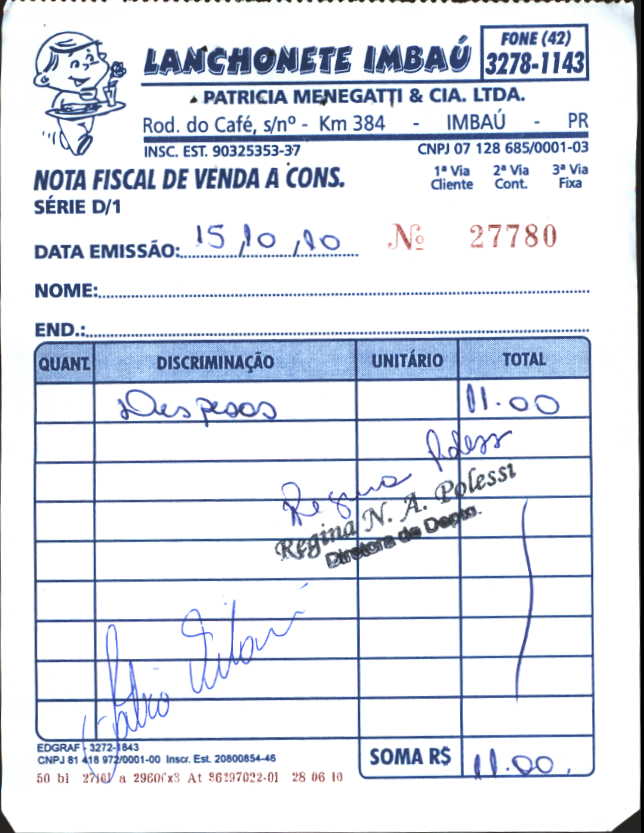 LANCHONETE IMBAÚ
FONE (42)
3278-1143
PATRICIA MENEGATTI & CIA. LTDA.
Rod. do Café, s/nº - Km 384 - IMBAÚ - PR
INSC. EST. 90325353-37 CNPJ 07 128 685/0001-03
NOTA FISCAL DE VENDA A CONS.
1ª Via Cliente 2ª Via Cont. 3ª Via Fixa
SÉRIE D/1
DATA EMISSÃO: 15,10,10 Nº 27780
NOME:
END.:
QUANT. DISCRIMINAÇÃO UNITÁRIO TOTAL
Despesas 11.00
Regina Poless
Regina N. A. Polessi
Diretora de Depto.
Fábio
EDGRAF - 3272-1843
CNPJ 81 418 972/0001-00 Inscr. Est. 20800854-46
SOMA R$ 11.00,
50 bl a x3 At 28 06 10